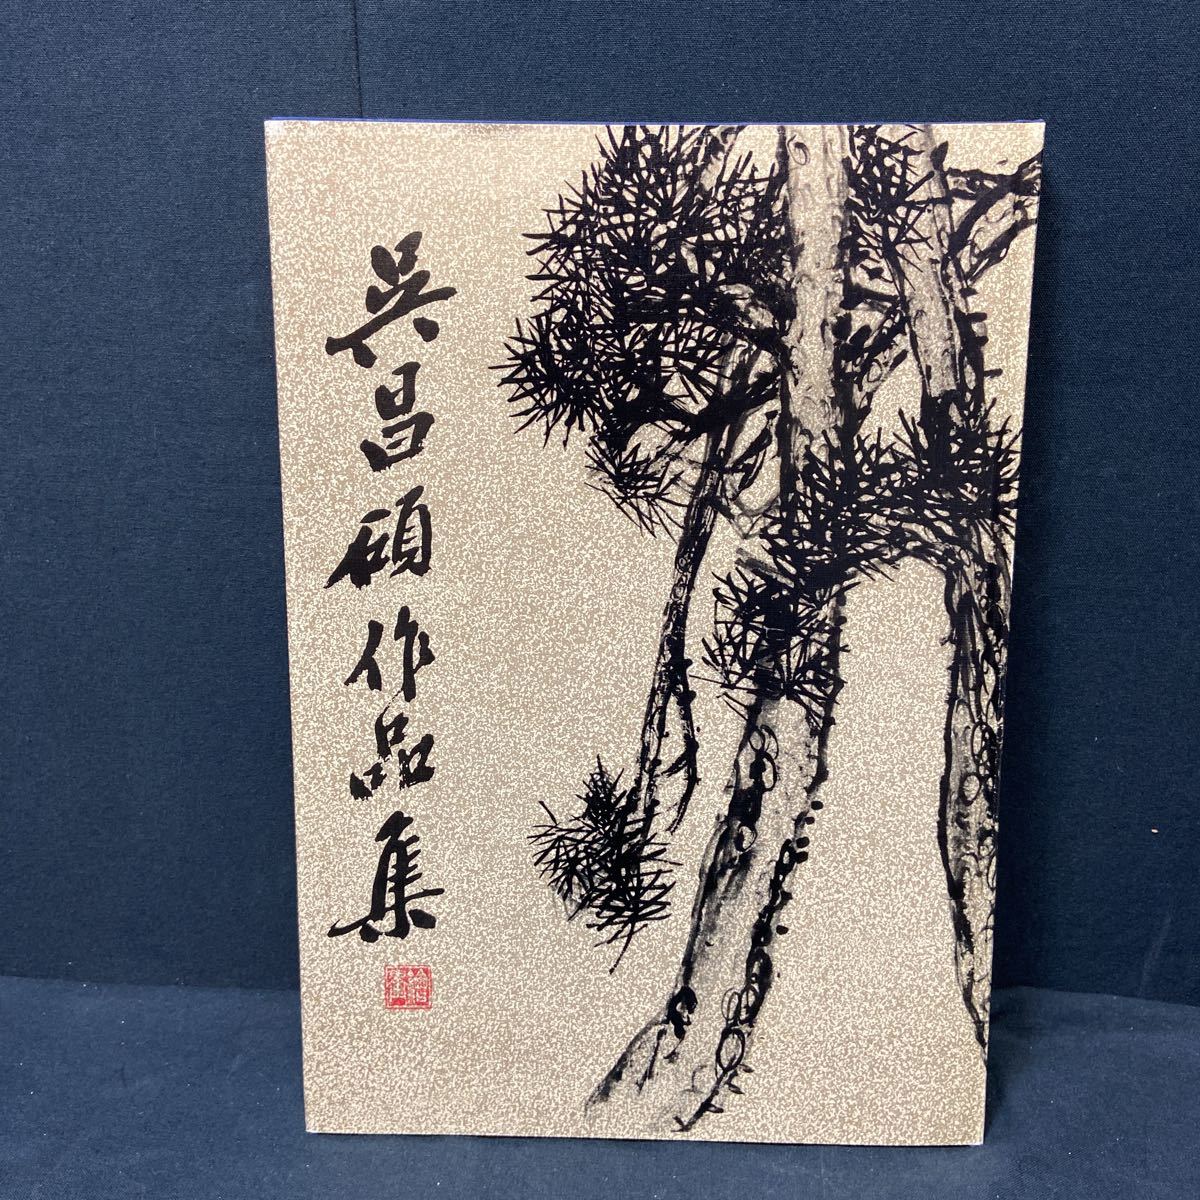 吴昌碩作品集